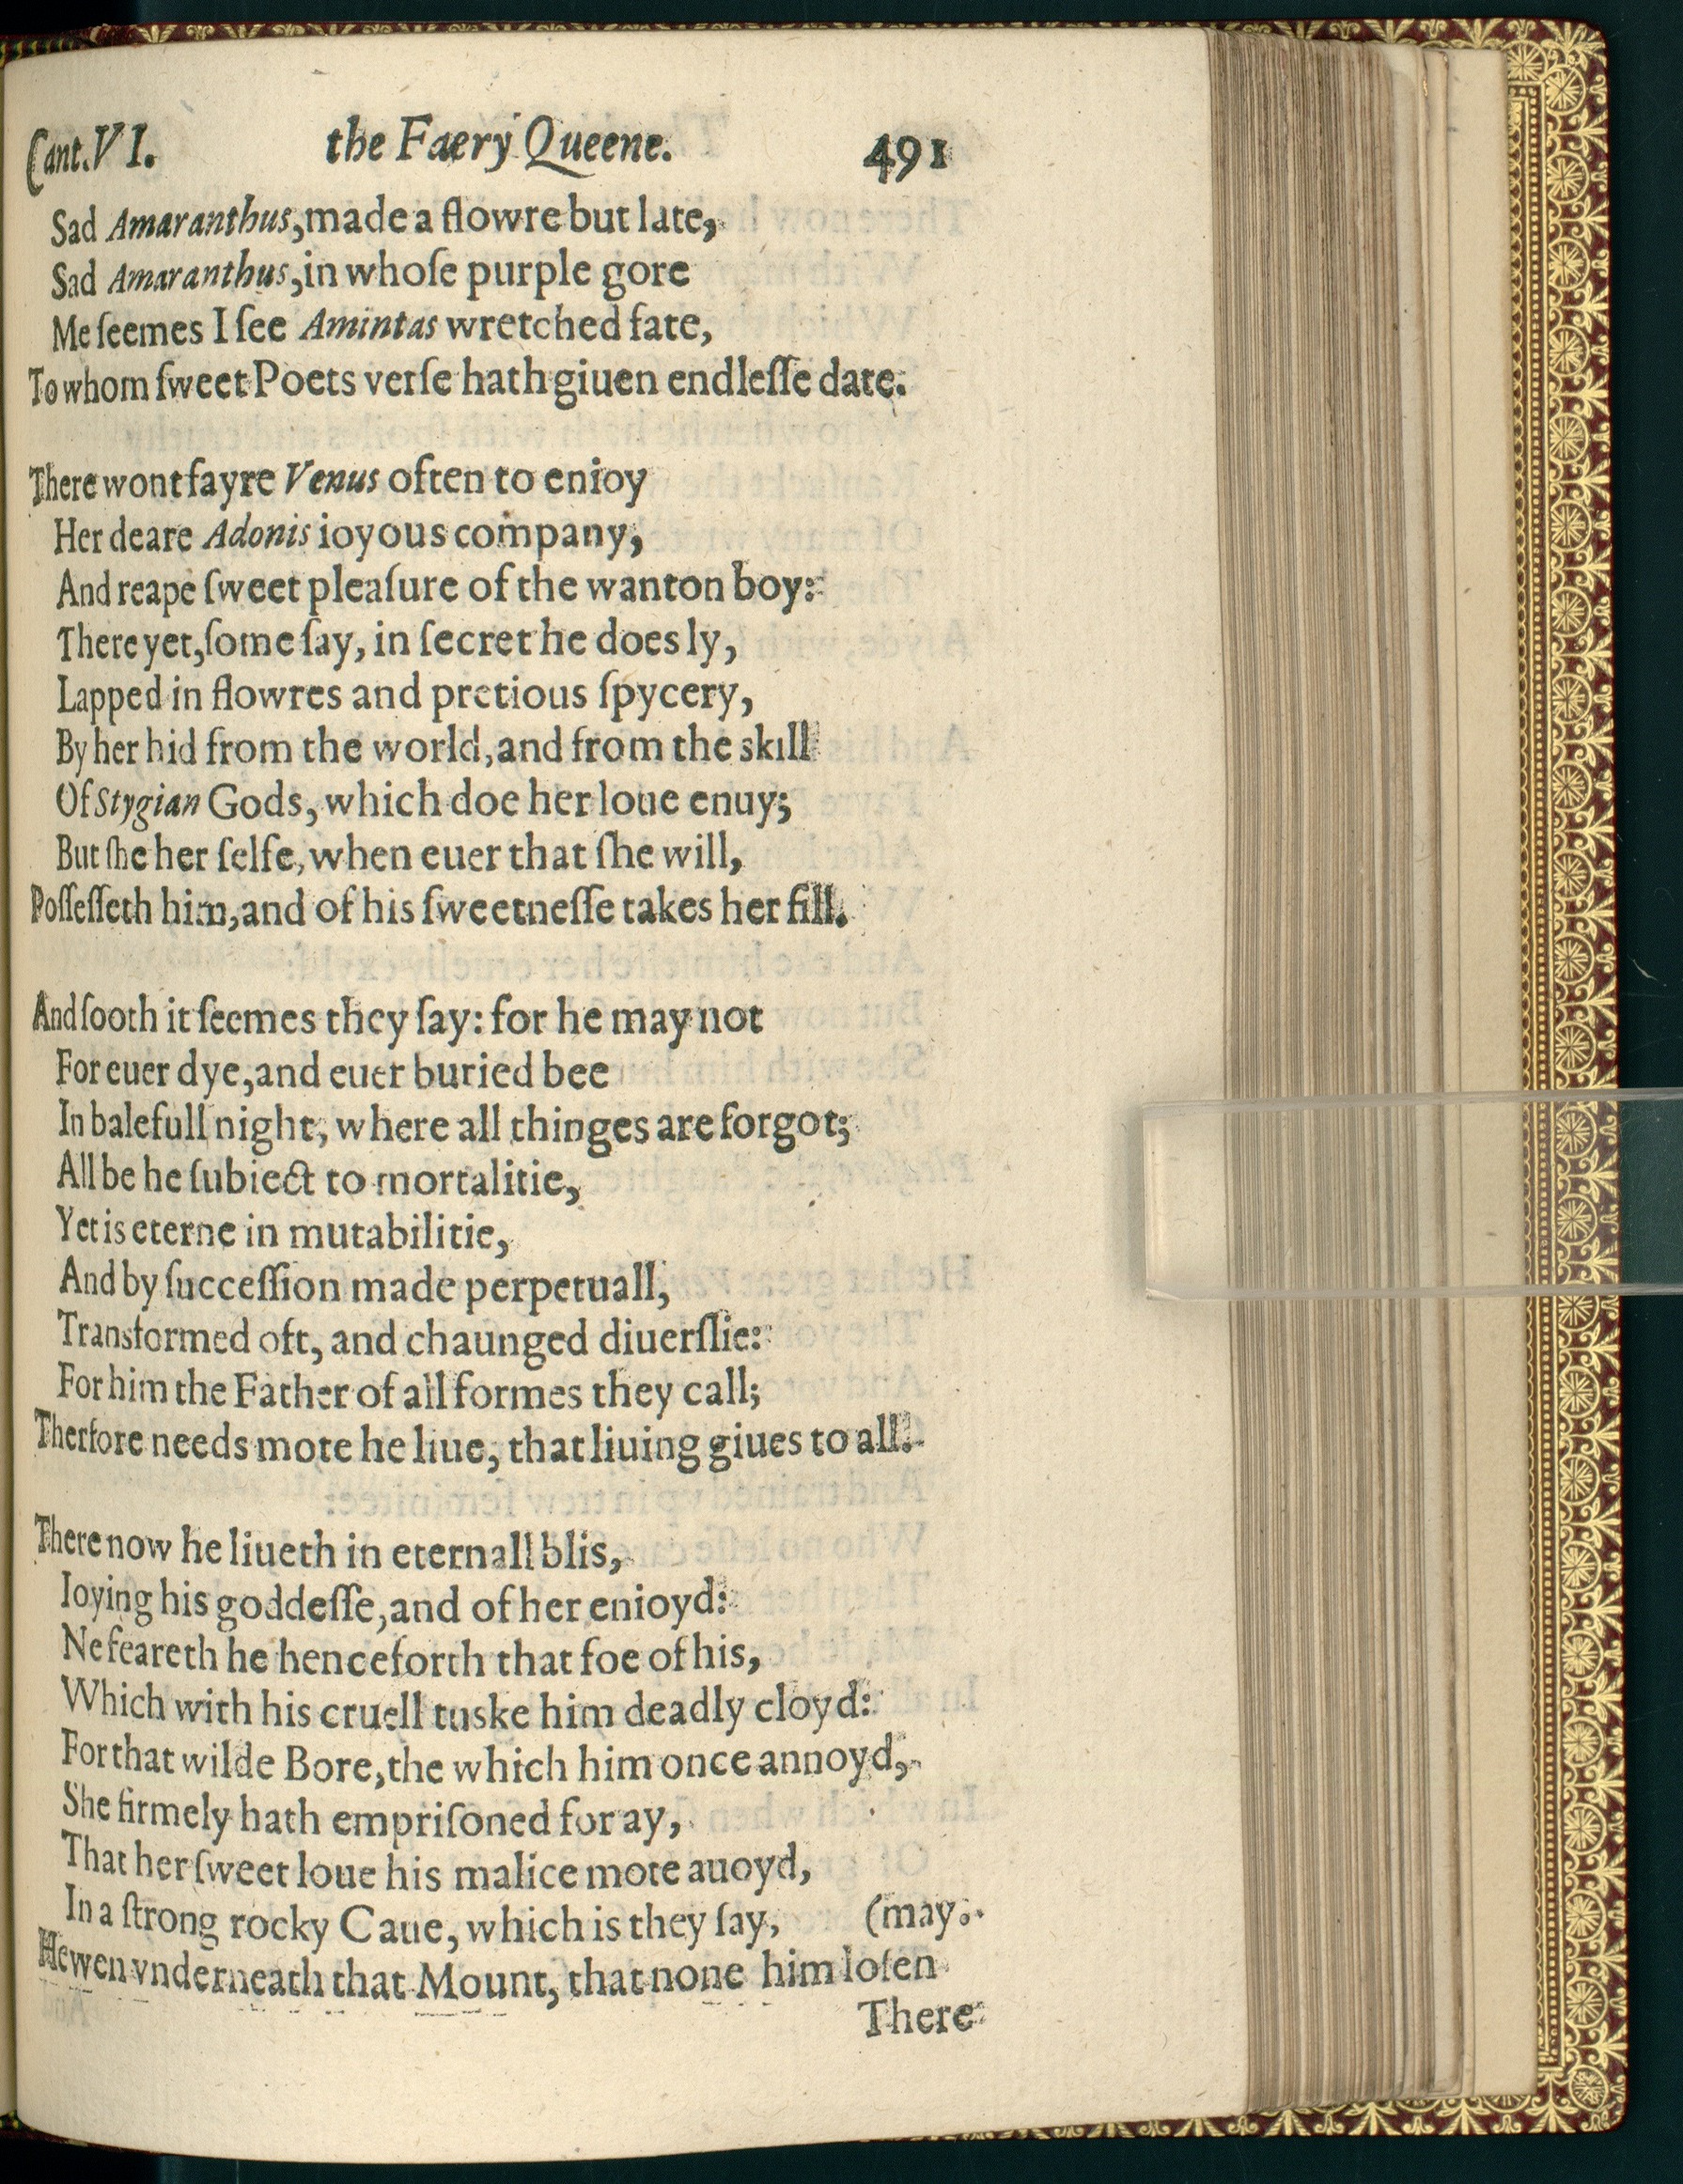 Cant. VI. the Faery Queene. 491
Sad Amaranthus, made a flowre but late,
Sad Amaranthus, in whoſe purple gore
Me ſeemes I ſee Amintas wretched fate,
To whom ſweet Poets verſe hath giuen endleſſe date.
There wont fayre Venus often to enioy
Her deare Adonis ioyous company,
And reape ſweet pleaſure of the wanton boy:
There yet, ſome ſay, in ſecret he does ly,
Lapped in flowres and pretious ſpycery,
By her hid from the world, and from the skill
Of Stygian Gods, which doe her loue enuy;
But ſhe her ſelfe, when euer that ſhe will,
Poſſeſſeth him, and of his ſweetneſſe takes her fill.
And ſooth it ſeemes they ſay: for he may not
For euer dye, and euer buried bee
In balefull night, where all thinges are forgot;
All be he ſubiect to mortalitie,
Yet is eterne in mutabilitie,
And by ſucceſſion made perpetuall,
Transformed oft, and chaunged diuerſlie:
For him the Father of all formes they call;
Therfore needs mote he liue, that liuing giues to all.
There now he liueth in eternall blis,
Ioying his goddeſſe, and of her enioyd:
Ne feareth he henceforth that foe of his,
Which with his cruell tuske him deadly cloyd:
For that wilde Bore, the which him once annoyd,
She firmely hath empriſoned for ay,
That her ſweet loue his malice mote auoyd,
In a ſtrong rocky Caue, which is they ſay, (may.
Hewen vnderneath that Mount, that none him loſen
There